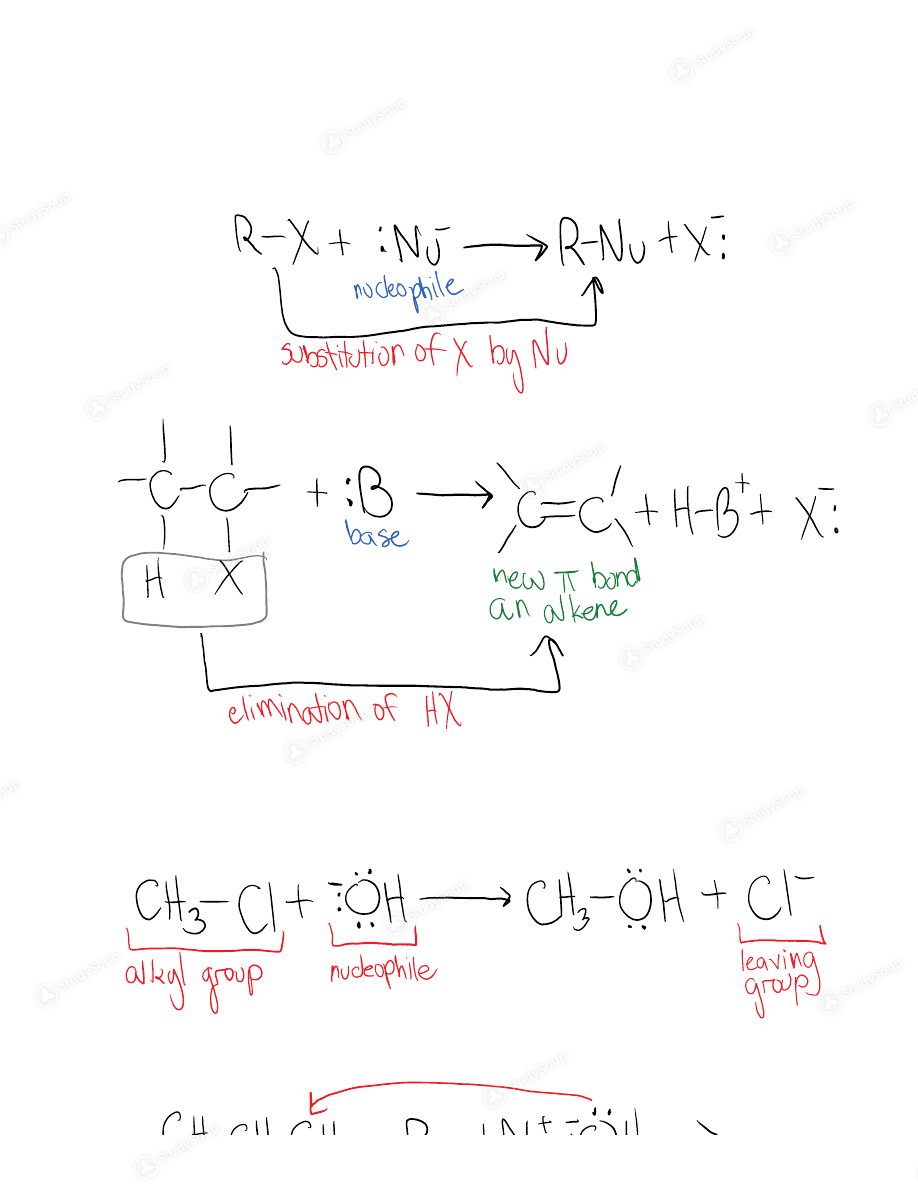 R-X + :Nu⁻ → R-Nu + X⁻:
nucleophile
substitution of X by Nu
-C-C- + :B → C=C + H-B⁺ + X⁻:
base
H X
new π bond
an alkene
elimination of HX
CH₃-Cl + ⁻:ÖH → CH₃-ÖH + Cl⁻
alkyl group nucleophile leaving
group
StudySoup